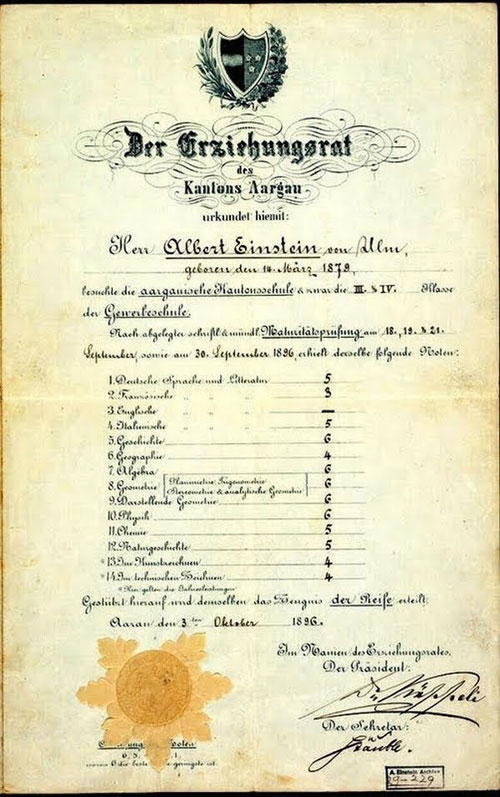 Der Erziehungsrat
des
Kantons Aargau
urkundet hiemit:
Herr Albert Einstein von Ulm,
geboren den 14. März 1879,
besuchte die aargauische Kantonsschule & zwar die III. & IV. Klasse
der Gewerbeschule.
Nach abgelegter schriftl. & mündl. Maturitätsprüfung am 18., 19. & 21.
September, sowie am 30. September 1896, erhielt derselbe folgende Noten:
1. Deutsche Sprache und Litteratur 5
2. Französische " " " 3
3. Englische " " " —
4. Italienische " " " 5
5. Geschichte 6
6. Geographie 4
7. Algebra 6
8. Geometrie Planimetrie, Trigonometrie 6
Stereometrie & analytische Geometrie 6
9. Darstellende Geometrie 6
10. Physik 6
11. Chemie 5
12. Naturgeschichte 5
*13. Im Kunstzeichnen 4
*14. Im technischen Zeichnen 4
*Hier gelten die Jahresleistungen
Gestützt hierauf wird demselben das Zeugnis der Reife erteilt.
Aarau den 3ten Oktober 1896.
Im Namen des Erziehungsrates,
Der Präsident:
Der Sekretär:
Stäuble.
Noten
6, 5, 1.
wovon 6 die beste geringste ist.
A. Einstein Archive
29-229